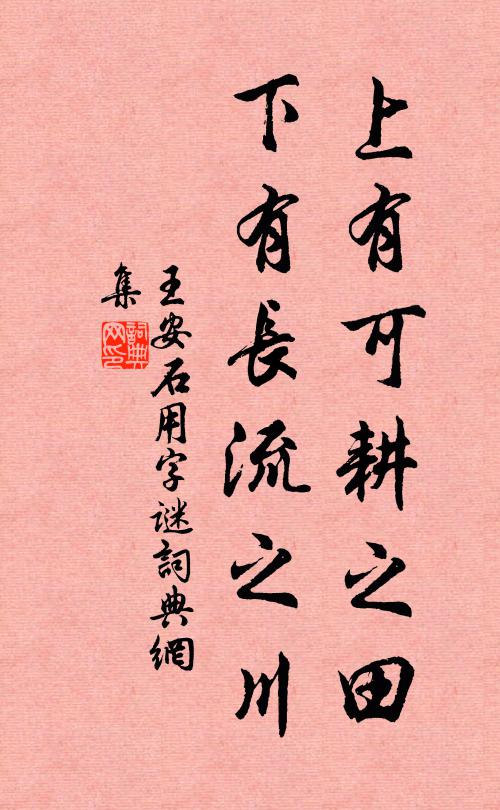 上有可耕之田
下有長流之川
王安石用字谜詞典網
集
詞典
网印